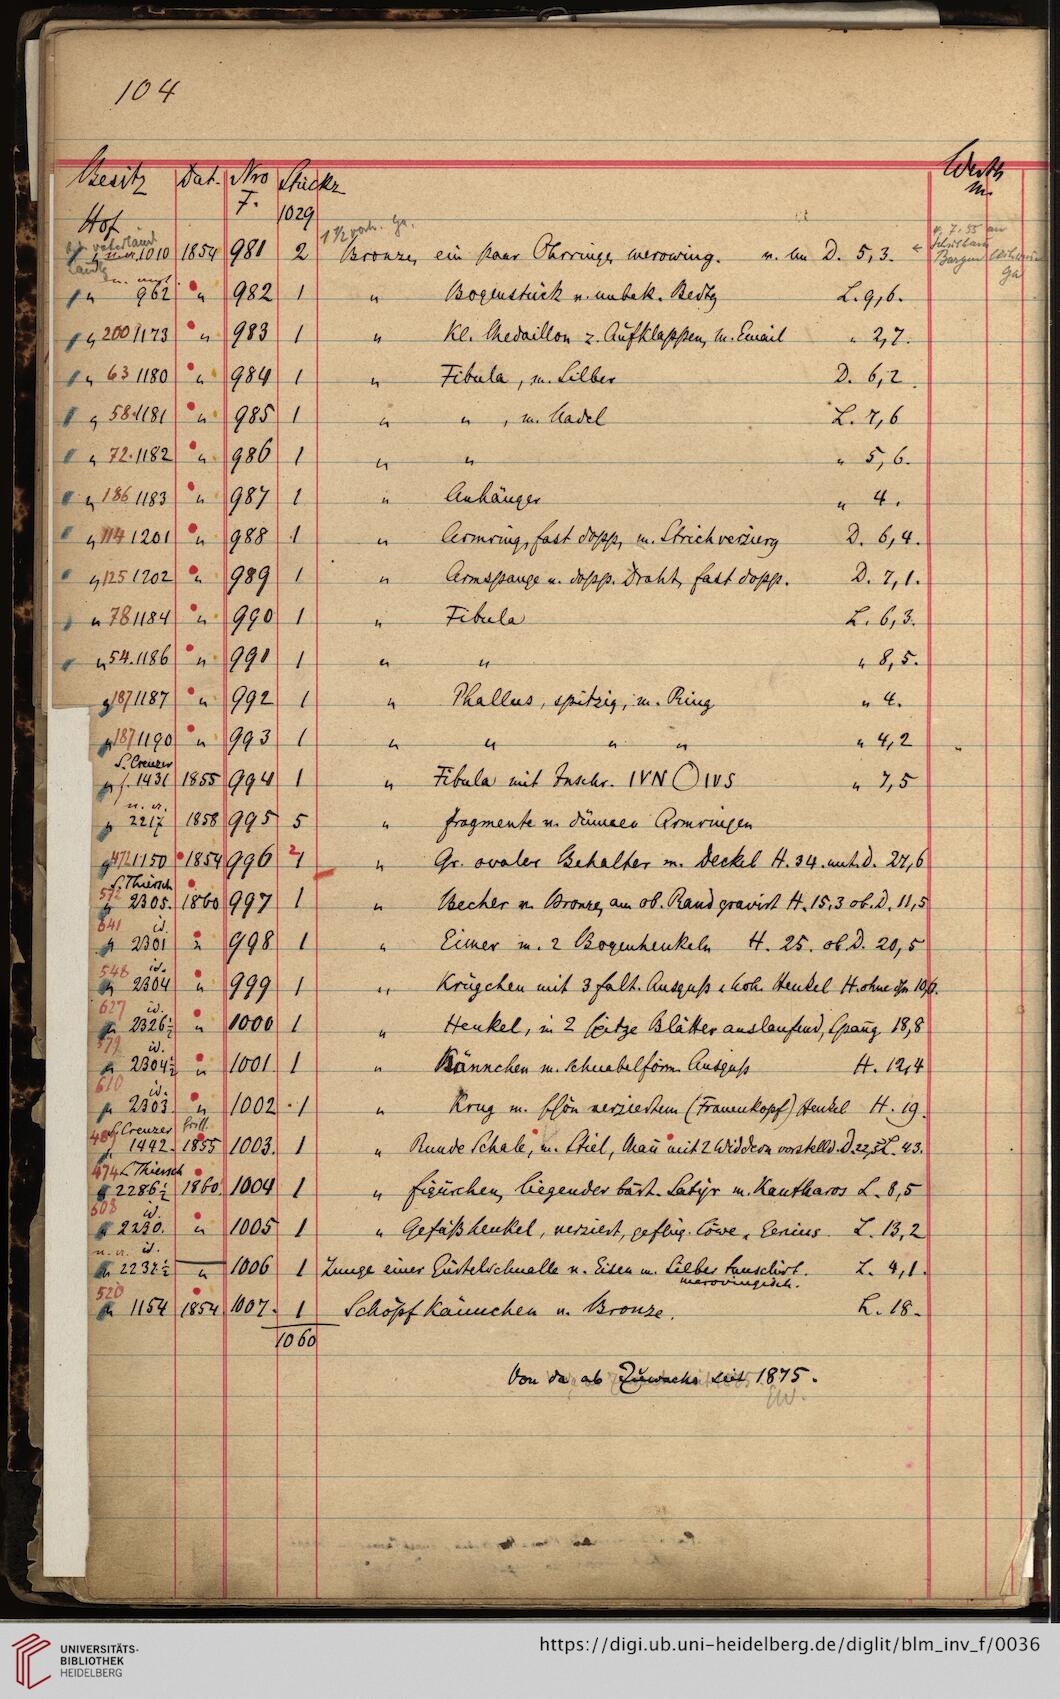 104
Besitz Dat. Nro F. Stücke Werth M.
Hof 1029
1010 1854 981 2 Bronze, ein paar Ohrringe, merowing. D. 5,3.
" 962 " 982 1 " Bogenstück v. unbek. Bedtg L. 9,6.
" 200 1173 " 983 1 " Kl. Medaillon z. Aufklappen, m. Email " 2,7.
" 63 1180 " 984 1 " Fibula, m. Silber D. 6,2.
" 58 1181 " 985 1 " " , m. Nadel L. 7,6
" 72. 1182 " 986 1 " " " 5,6.
" 186 1183 " 987 1 " Anhänger " 4.
" 114 1201 " 988 1 " Armring, fast dopp, m. Strichverzierg D. 6,4.
" 125 1202 " 989 1 " Armspange v. dopp. Draht, fast dopp. D. 7,1.
" 78 1184 " 990 1 " Fibula L. 6,3.
" 54. 1186 " 991 1 " " " 8,5.
" 187 1187 " 992 1 " Phallus, spitzig, m. Ring " 4.
" 187 1190 " 993 1 " " " " " 4,2
S. Creuzer
" f. 1431 1855 994 1 " Fibula mit Inschr. IVN O IVS " 7,5
n. v.
" 2217 1858 995 5 " fragmente v. dünnen Armringen
" 472 1150 1854 996 1 " Gr. ovaler Behälter m. Deckel H. 34. unt. D. 27,6
S. Thiersch
572 " 2305. 1860 997 1 " Becher v. Bronze, am ob. Rand gravirt H. 15,3 ob. D. 11,5
641 id.
" 2301 " 998 1 " Eimer m. 2 Bogenhenkeln H. 25. ob D. 20,5
548 id.
" 2304 " 999 1 " Krügchen mit 3 falt. Ausguß u hoh. Henkel H. ohne 10,6.
627 id.
" 2326½ " 1000 1 " Henkel, in 2 spitze Blätter auslaufend, Spang 18,8
579 id.
" 2304½ " 1001. 1 " Kännchen m. schnabelförm. Ausguß H. 12,4
610 id.
" 2303. " 1002 1 " Krug m. schön verziertem (Frauenkopf) Henkel H. 19.
S. Creuzer
" 1442. 1855 1003. 1 " Runde Schale, m. Stiel, mit 2 Widdern vorstelld. D. 22,5 L. 43.
674 S. Thiersch
" 2286½ 1860. 1004 1 " figürchen, liegender bärt. Satyr m. Kantharos L. 8,5
608 id.
" 2230. " 1005 1 " Gefäßhenkel, verziert, geflüg. Löwe, Genius. L. 13,2
n. v. id.
" 2232½ " 1006 1 Zunge einer Gürtelschnalle v. Eisen m. Silber tauschirt. L. 4,1.
merovingisch.
520
" 1154 1854 1007. 1 Schöpfkännchen v. Bronze. L. 18.
1060
Von da ab Zuwachs seit 1875.
UNIVERSITÄTS-
BIBLIOTHEK
HEIDELBERG
https://digi.ub.uni-heidelberg.de/diglit/blm_inv_f/0036